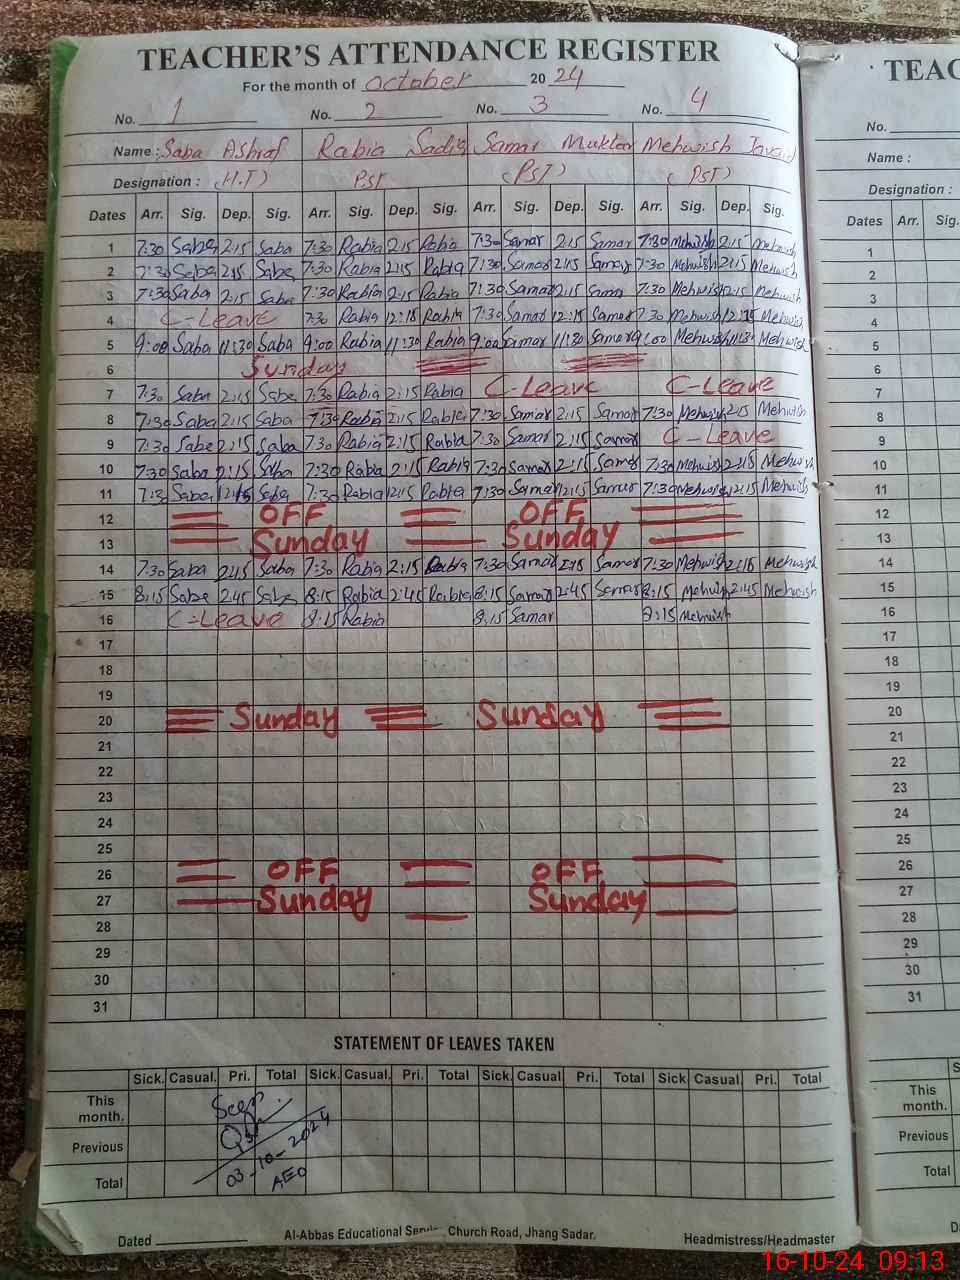 TEACHER'S ATTENDANCE REGISTER
For the month of October 2024
No. 1 No. 2 No. 3 No. 4
Name : Saba Ashraf Rabia Sadiq Samar Mukhtar Mehwish Javaid
Designation : (H.T) PST (PST) (PST)
Dates Arr. Sig. Dep. Sig. Arr. Sig. Dep. Sig. Arr. Sig. Dep. Sig. Arr. Sig. Dep. Sig.
1 7:30 Saba 2:15 Saba 7:30 Rabia 2:15 Rabia 7:30 Samar 2:15 Samar 7:30 Mehwish 2:15 Mehwish
2 7:30 Saba 2:15 Saba 7:30 Rabia 2:15 Rabia 7:30 Samar 2:15 Samar 7:30 Mehwish 2:15 Mehwish
3 7:30 Saba 2:15 Saba 7:30 Rabia 2:15 Rabia 7:30 Samar 2:15 Samar 7:30 Mehwish 2:15 Mehwish
4 C-Leave 7:30 Rabia 12:15 Rabia 7:30 Samar 12:15 Samar 7:30 Mehwish 12:15 Mehwish
5 9:00 Saba 11:30 Saba 9:00 Rabia 11:30 Rabia 9:00 Samar 11:30 Samar 9:00 Mehwish 11:30 Mehwish
6 Sunday
7 7:30 Saba 2:15 Saba 7:30 Rabia 2:15 Rabia C-Leave C-Leave
8 7:30 Saba 2:15 Saba 7:30 Rabia 2:15 Rabia 7:30 Samar 2:15 Samar 7:30 Mehwish 2:15 Mehwish
9 7:30 Saba 2:15 Saba 7:30 Rabia 2:15 Rabia 7:30 Samar 2:15 Samar C-Leave
10 7:30 Saba 2:15 Saba 7:30 Rabia 2:15 Rabia 7:30 Samar 2:15 Samar 7:30 Mehwish 2:15 Mehwish
11 7:30 Saba 12:15 Saba 7:30 Rabia 12:15 Rabia 7:30 Samar 12:15 Samar 7:30 Mehwish 12:15 Mehwish
12 OFF OFF
13 Sunday Sunday
14 7:30 Saba 2:15 Saba 7:30 Rabia 2:15 Rabia 7:30 Samar 2:15 Samar 7:30 Mehwish 2:15 Mehwish
15 8:15 Saba 2:45 Saba 8:15 Rabia 2:45 Rabia 8:15 Samar 2:45 Samar 8:15 Mehwish 2:45 Mehwish
16 C-Leave 8:15 Rabia 8:15 Samar 8:15 Mehwish
17
18
19
20 Sunday Sunday
21
22
23
24
25
26 OFF OFF
27 Sunday Sunday
28
29
30
31
STATEMENT OF LEAVES TAKEN
Sick. Casual. Pri. Total Sick. Casual. Pri. Total Sick. Casual. Pri. Total Sick. Casual. Pri. Total
This month.
Previous
Total
Seen
03-10-2024
AEO
Dated
Al-Abbas Educational Church Road, Jhang Sadar.
Headmistress/Headmaster
TEAC
No.
Name :
Designation :
Dates Arr. Sig.
1
2
3
4
5
6
7
8
9
10
11
12
13
14
15
16
17
18
19
20
21
22
23
24
25
26
27
28
29
30
31
This month.
Previous
Total
16-10-24 09:13